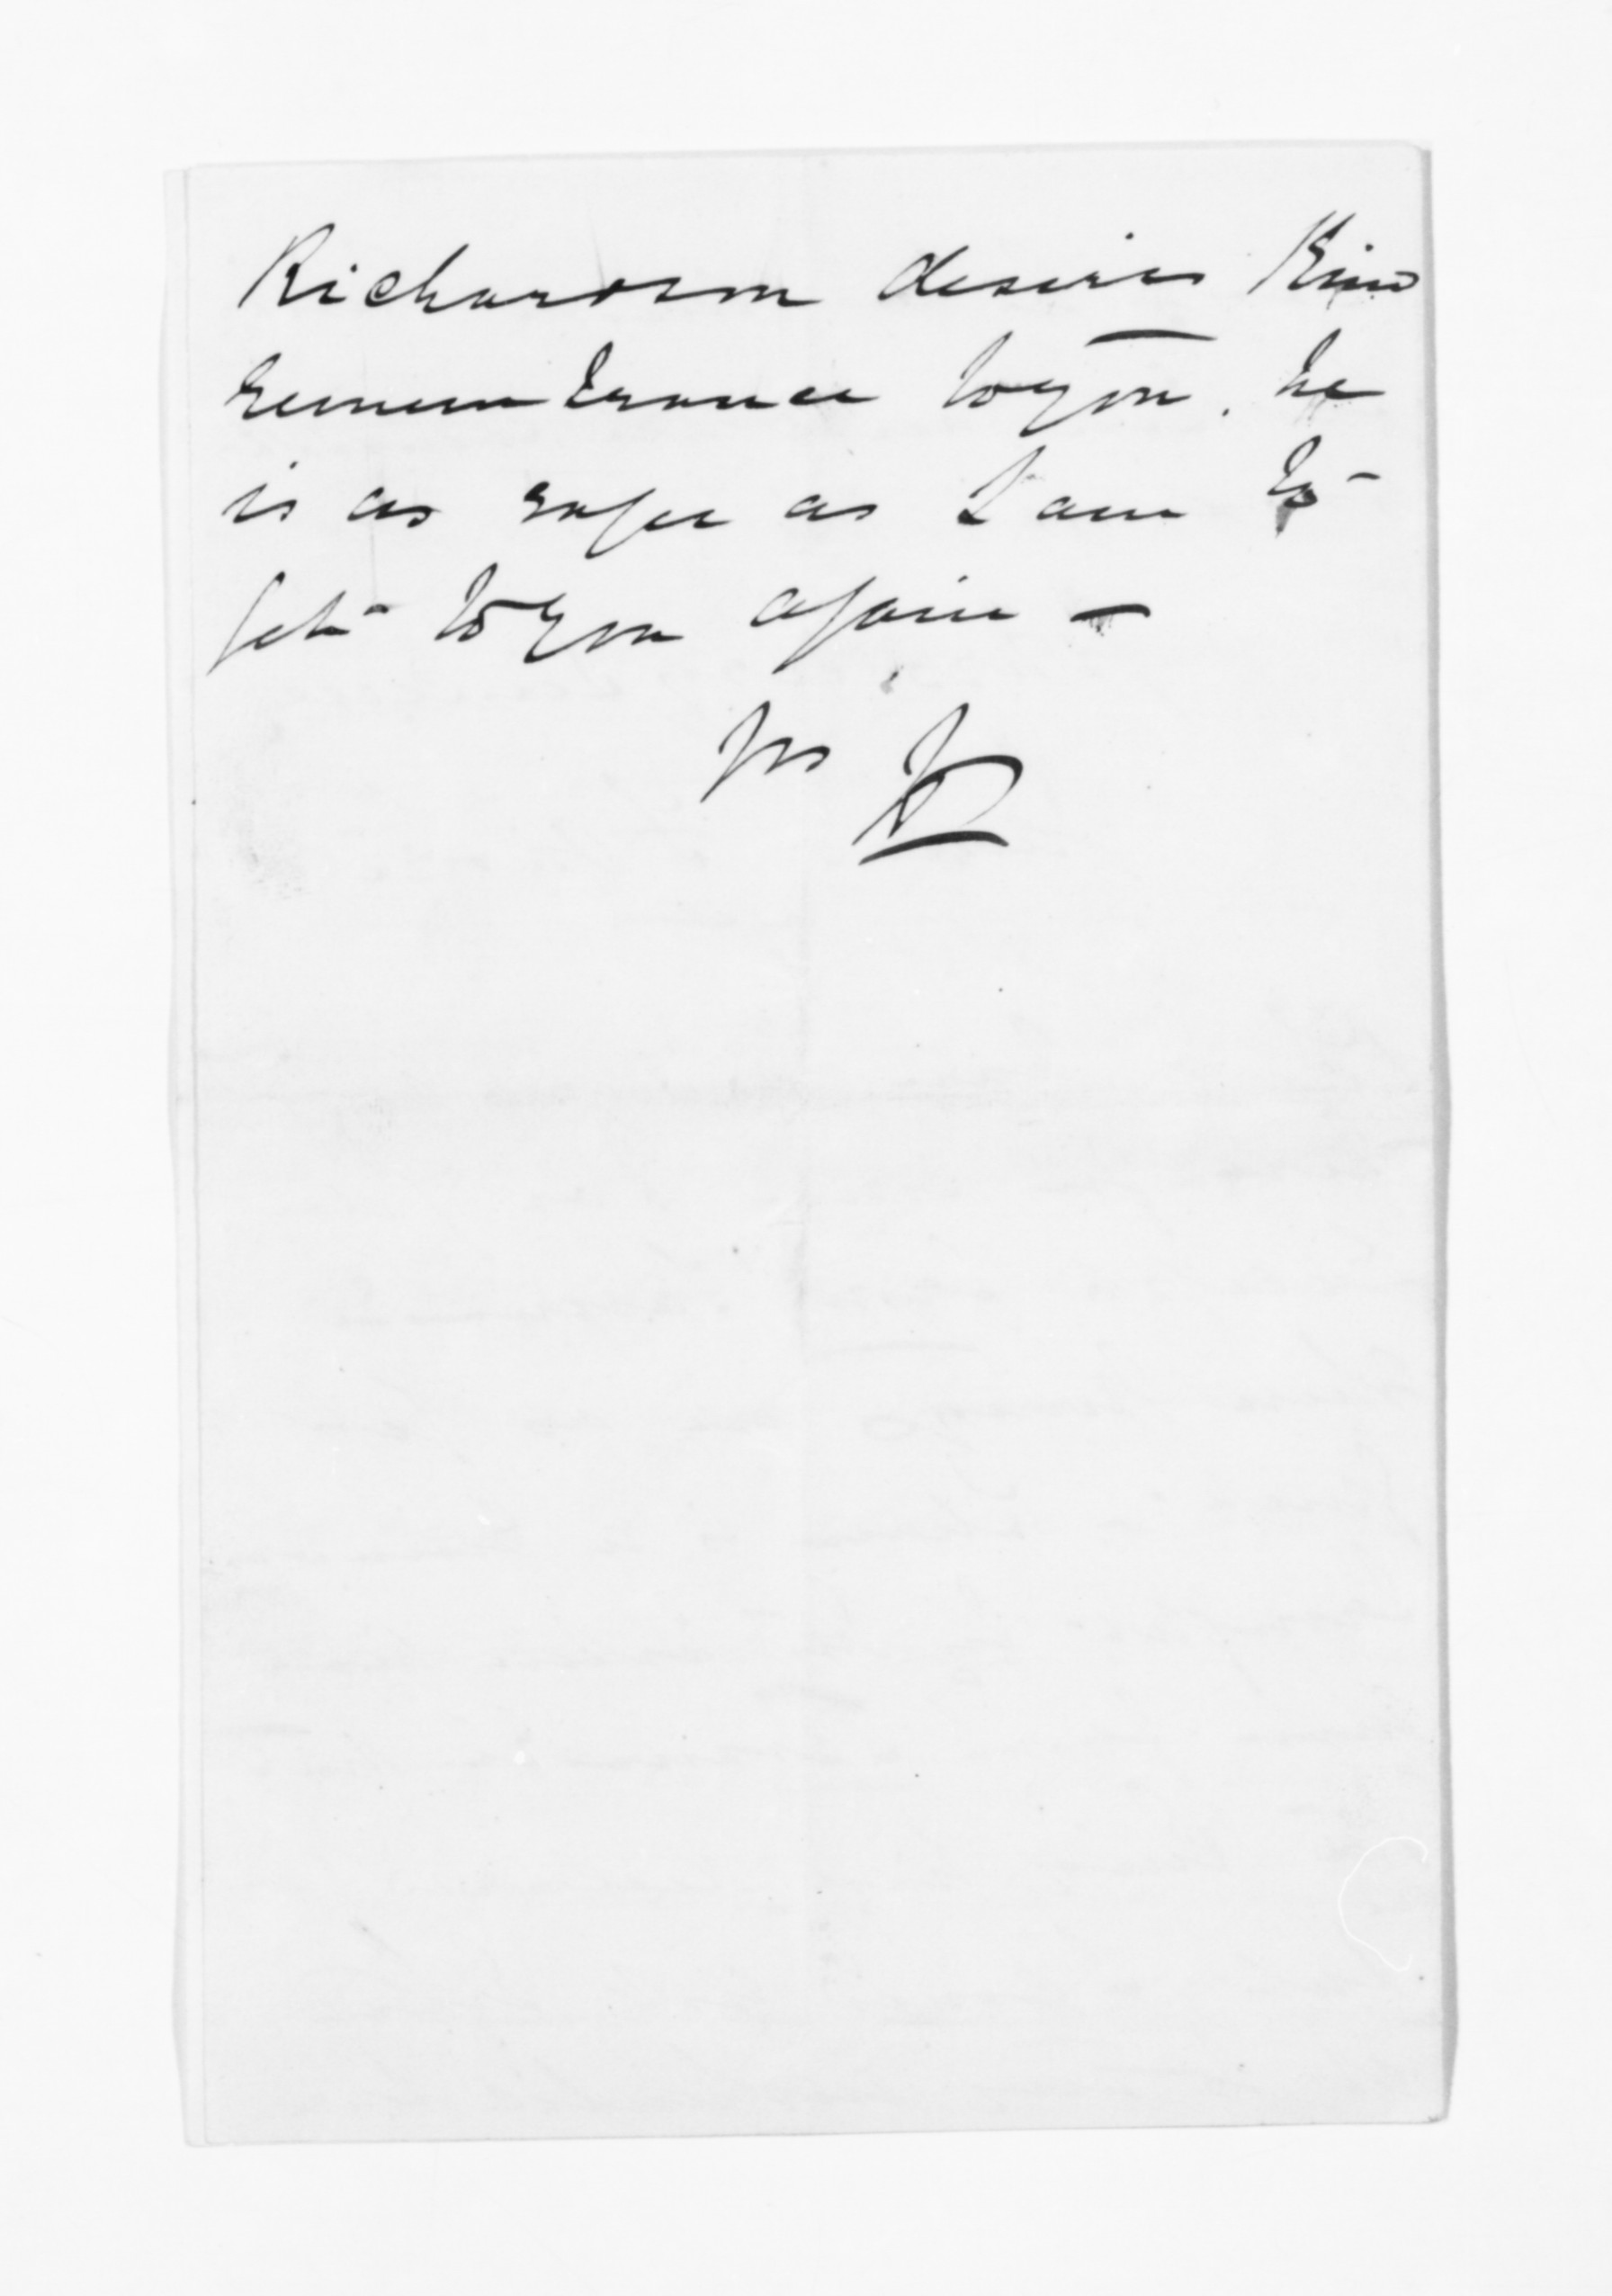 Richardson desires Kind
remembrance to you. he
is as eager as I am to
get to you again —